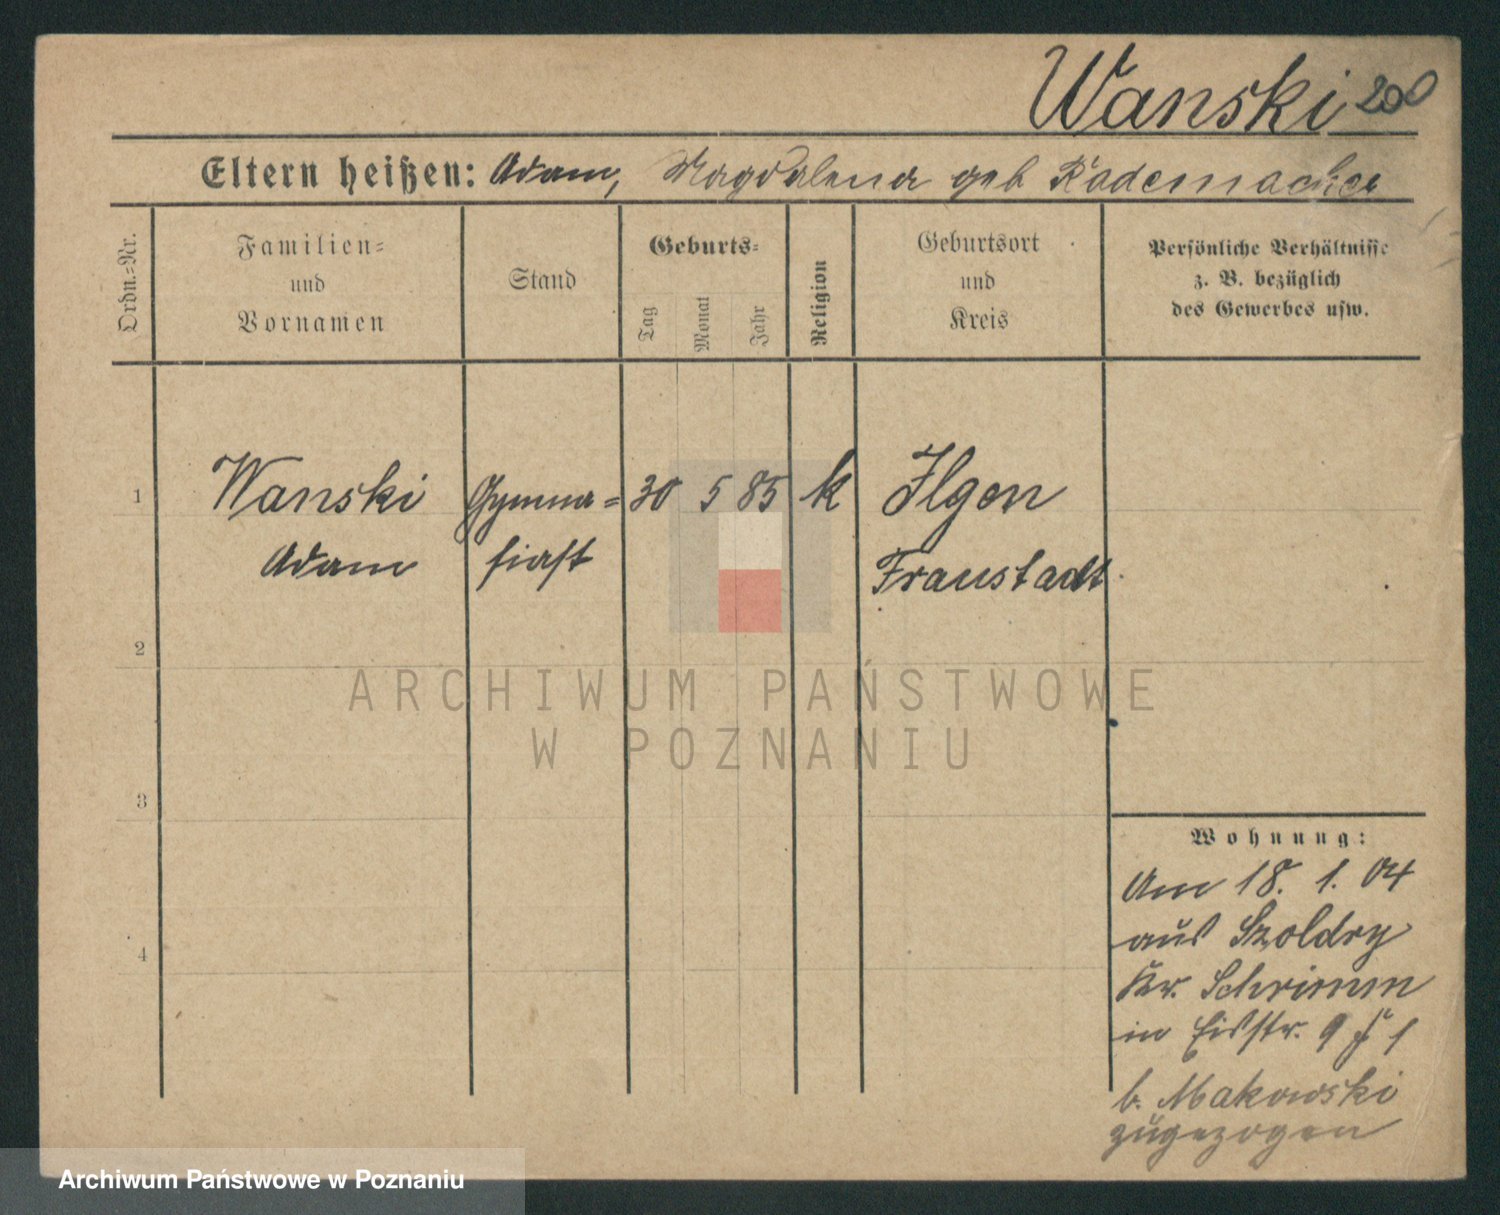 Wanski 200
Eltern heißen: Adam, Magdalena geb Rademacher
Ordn.=Nr.
Familien=
und
Vornamen
Stand
Geburts=
Tag
Monat
Jahr
Religion
Geburtsort
und
Kreis
Persönliche Verhältnisse
z. B. bezüglich
des Gewerbes usw.
1 Wanski Gymna= 30 5 85 k Ilgen
Adam siast Fraustadt
2
ARCHIWUM PAŃSTWOWE
W POZNANIU
3
Wohnung:
Am 18. 1. 04
aus Szoldry
4
Kr. Schrimm
in 9 1
b. Makowski
zugezogen
Archiwum Państwowe w Poznaniu